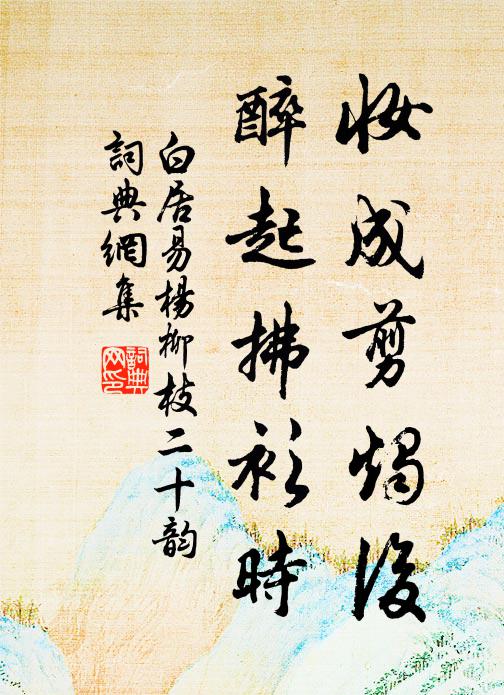 妆成剪烛後
醉起拂衫時
白居易楊柳枝二十韵
詞典網集
詞典網印